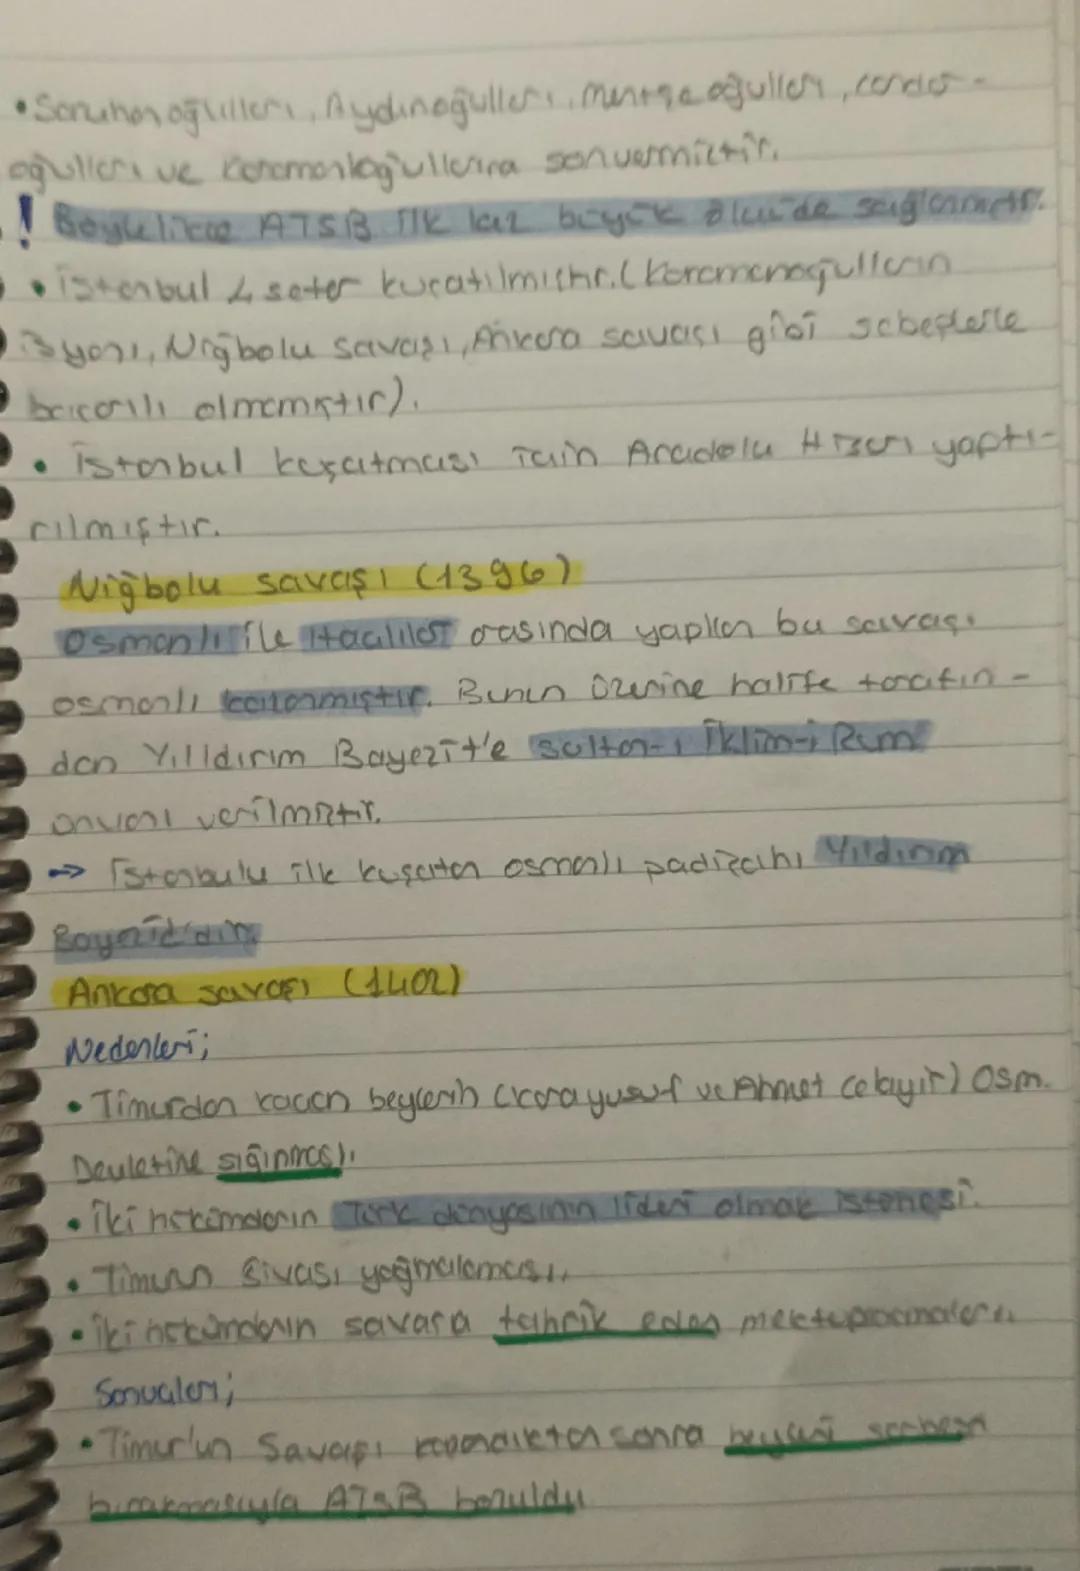 • Saruhanoğulları, Aydınoğulları, Menteşeoğulları, candar-
oğulları ve Karamanoğullarına sonvermiştir.
! Böylelikle ATSB ilk kez büyük ölçüde sağlanmıştır.
• İstanbul 4 sefer kuşatılmıştır. (Karamanoğullarının
isyanı, Niğbolu savaşı, Ankara savaşı gibi sebeplerle
başarılı olmamıştır).
• İstanbul kuşatması için Anadolu Hisarı yaptı-
rılmıştır.
Niğbolu savaşı (1396)
Osmanlı ile Haçlılar arasında yapılan bu savaşı
osmanlı kazanmıştır. Bunun üzerine halife tarafın-
dan Yılldırım Bayezit'e sultan-ı İklim-i Rum
ünvanı verilmiştir.
→ İstanbulu ilk kuşatan osmanlı padişahı Yıldırım
Bayezid'dir.
Ankara savaşı (1402)
Nedenleri;
• Timurdan kaçan beylerin (Karayusuf ve Ahmet Celayir) Osm.
Devletine sığınması.
• İki hükümdarın Türk dünyasının lideri olmak istemesi.
• Timurun Sivası yağmalaması.
• İki hükümdarın savaşa tahrik eden mektuplaşmaları.
Sonuçları;
• Timur'un Savaşı kazandıktan sonra beyleri serbest
bırakmasıyla ATSB bozuldu